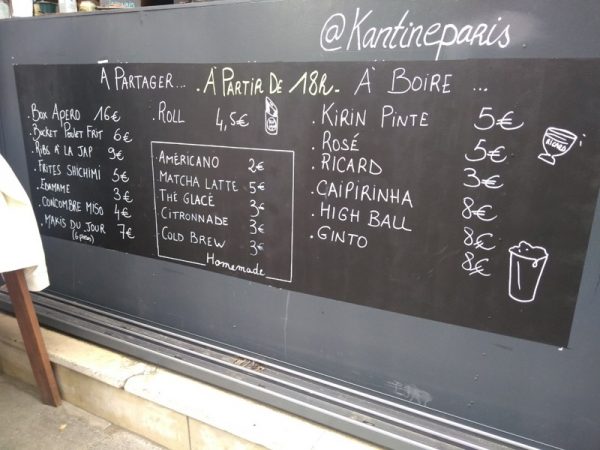 @Kantineparis
A PARTAGER... . À PARTIR DE 18h. À BOIRE ...
. BOX APERO 16€
. BUCKET POULET FRIT 6€
. RIBS À LA JAP 9€
. FRITES SHICHIMI 5€
. EDAMAME 3€
. CONCOMBRE MISO 4€
. MAKIS DU JOUR 7€
(6 pièces)
. ROLL 4,5€
. AMÉRICANO 2€
. MATCHA LATTE 5€
. THÉ GLACÉ 3€
. CITRONNADE 3€
. COLD BREW 3€
Homemade
. KIRIN PINTE 5€
. ROSÉ 5€
. RICARD 3€
. CAIPIRINHA 8€
. HIGH BALL 8€
. GINTO 8€
RICARD